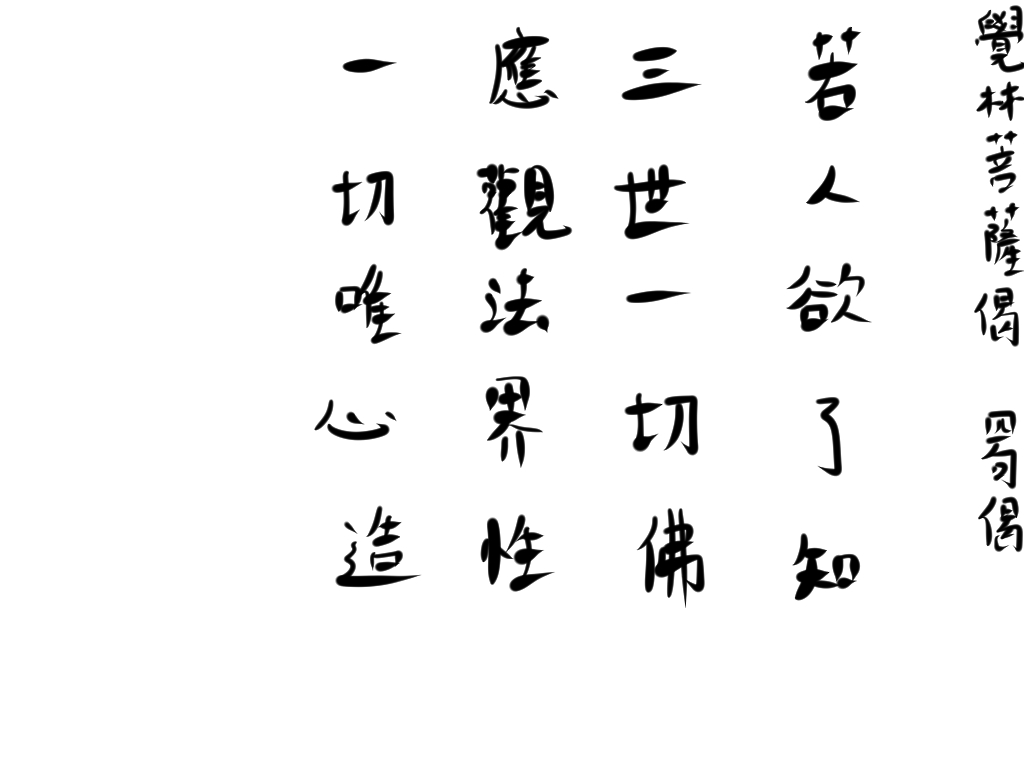 覺林菩薩偈 四句偈
若人欲了知
三世一切佛
應觀法界性
一切唯心造